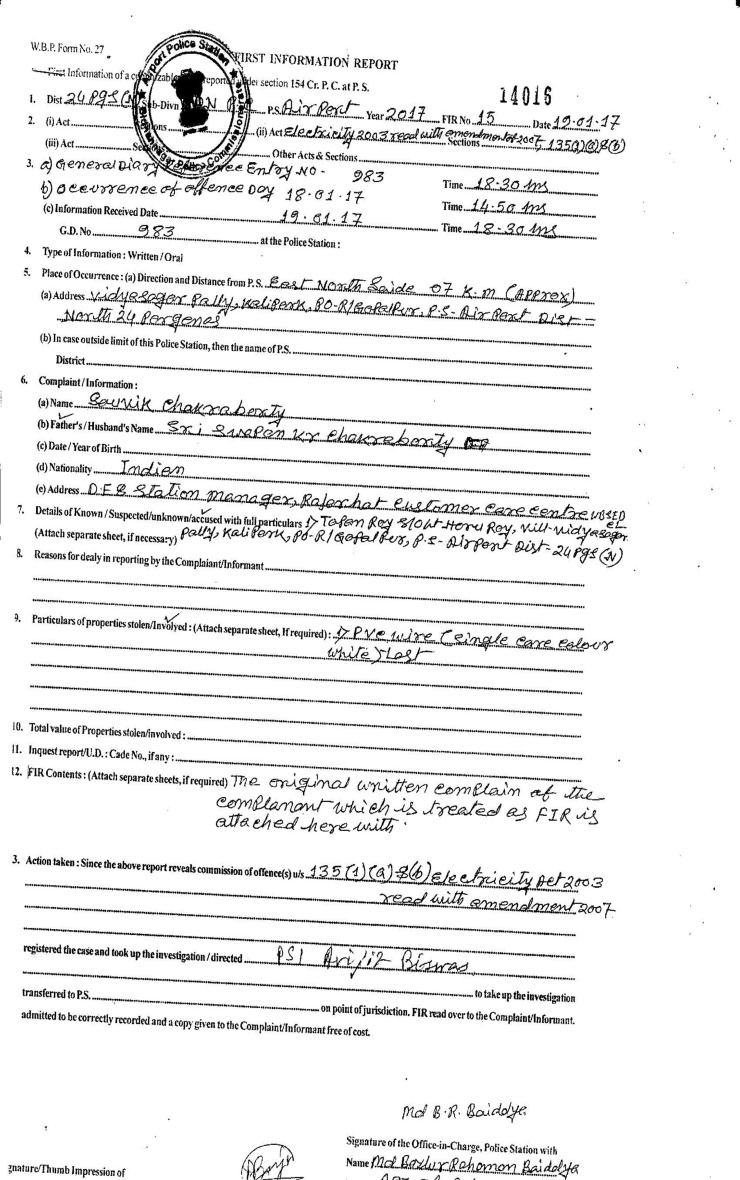 W.B.P. Form No. 27
FIRST INFORMATION REPORT
First Information of a cognizable reported under section 154 Cr. P. C. at P. S.
Airport Police Station
14016
1. Dist 24 Pgs (N) Sub-Divn P.S. Airport Year 2017 FIR No 15 Date 19-01-17
2. (i) Act Sections (ii) Act Electricity 2003 read with amendment of 2007 Sections 135(1)(a)&(b)
(iii) Act Other Acts & Sections
3. a) General Diary Entry No - 983 Time 18-30 hrs
b) occurrence of offence Day 18-01-17 Time 14-50 hrs
(c) Information Received Date 19-01-17
G.D. No 983 at the Police Station : Time 18-30 hrs
4. Type of Information : Written / Oral
5. Place of Occurrence : (a) Direction and Distance from P.S. East North Saide 07 K.m (Approx)
(a) Address Vidyasagar Pally, Kalipark, PO-R/Gopalpur, P.S-Airport Dist-
North 24 Parganas
(b) In case outside limit of this Police Station, then the name of P.S.
District
6. Complaint / Information :
(a) Name Souvik Chakraborty
(b) Father's / Husband's Name Sri Swapan Kr Chakraborty
(c) Date / Year of Birth
(d) Nationality Indian
(e) Address D.E & Station manager, Rajarhat Customer Care Centre WBSED
CL
7. Details of Known / Suspected/unknown/accused with full particulars 1) Tapan Roy S/O Lt- Horu Roy, Vill-Vidyasagar
(Attach separate sheet, if necessary) Pally, Kalipark, PO-R/Gopalpur, P.S-Airport Dist-24 Pgs (N)
8. Reasons for dealy in reporting by the Complaiant/Informant
9. Particulars of properties stolen/Involved : (Attach separate sheet, If required) : 1) PVC wire (single core colour
white)
10. Total value of Properties stolen/involved :
11. Inquest report/U.D. : Cade No., if any :
12. FIR Contents : (Attach separate sheets, if required) The original written complain of the
complanant which is treated as FIR is
attached here with.
3. Action taken : Since the above report reveals commission of offence(s) u/s 135(1)(a)&(b) Electricity Act 2003
read with amendment 2007
registered the case and took up the investigation / directed PSI Arijit Biswas
to take up the investigation
transferred to P.S. on point of jurisdiction. FIR read over to the Complaint/Informant.
admitted to be correctly recorded and a copy given to the Complaint/Informant free of cost.
Md B.R. Baiddya
Signature of the Office-in-Charge, Police Station with
gnature/Thumb Impression of
Name Md Bodiur Rahomon Baidolya